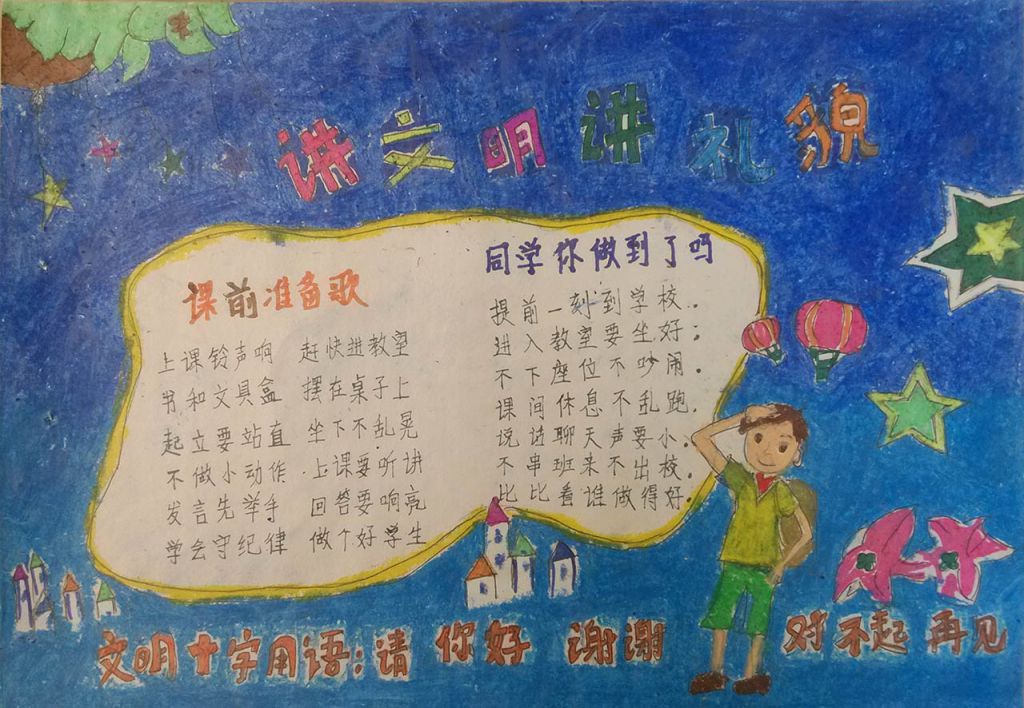 讲文明讲礼貌
课前准备歌
上课铃声响 赶快进教室
书和文具盒 摆在桌子上
起立要站直 坐下不乱晃
不做小动作 上课要听讲
发言先举手 回答要响亮
学会守纪律 做个好学生
同学你做到了吗
提前一刻到学校.
进入教室要坐好;
不下座位不吵闹.
课间休息不乱跑.
说话聊天声要小.
不串班来不出校.
比比看谁做得好.
文明十字用语:请 你好 谢谢 对不起 再见